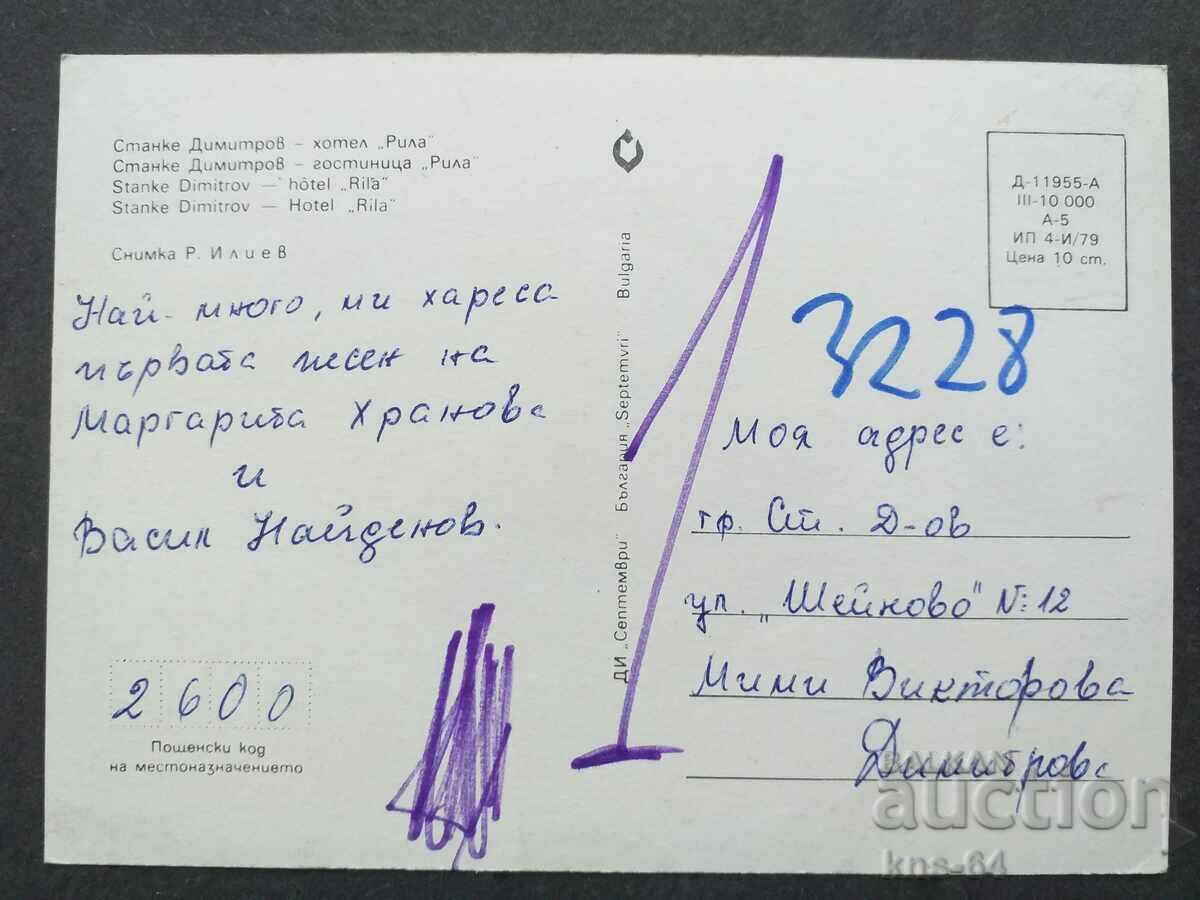 Станке Димитров – хотел „Рила“
Станке Димитров – гостиница „Рила“
Stanke Dimitrov — hôtel „Rila“
Stanke Dimitrov — Hotel „Rila“
Снимка Р. Илиев
Най-много, ми хареса
първата песен на
Маргарита Хранова
и
Васил Найденов.
2600
Пощенски код
на местоназначението
ДИ „Септември“ България „Septemvri“ Bulgaria
1
Д-11955-А
III-10 000
А-5
ИП 4-И/79
Цена 10 ст.
3228
Моя адрес е:
гр. Ст. Д-ов
ул. „Шейново“ №: 12
Мими Викторова
Димитрова
BALKAN
auction
kns-64